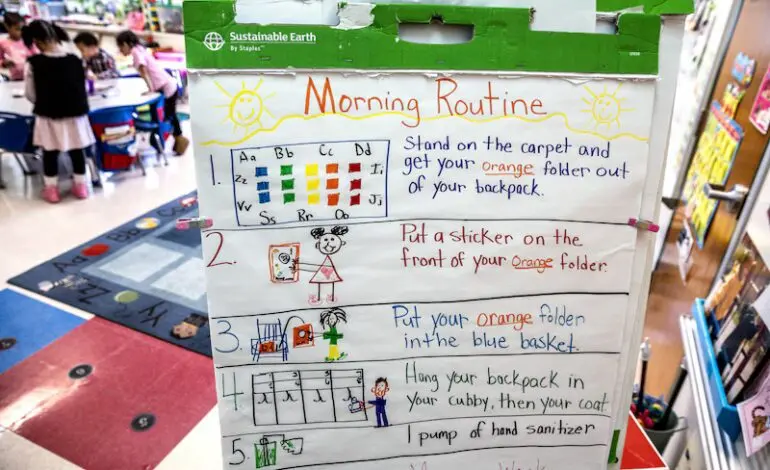 Sustainable Earth
By Staples
Morning Routine
1.
Aa Bb Cc Dd
Zz Ii
Vv Jj
Ss Rr Oo
Stand on the carpet and
get your orange folder out
of your backpack.
2.
Put a sticker on the
front of your Orange folder.
3.
Put your orange folder
in the blue basket.
4
Hang your backpack in
your cubby, then your coat
5.
1 pump of hand sanitizer
Aa Bb
Zz
Yy